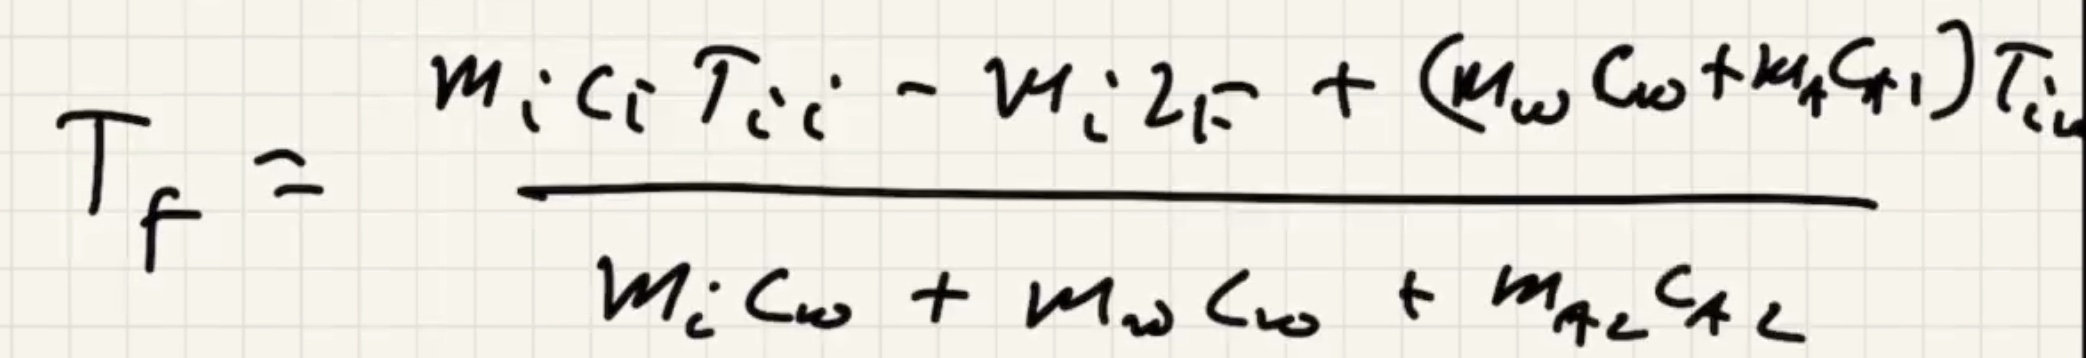 T_f = (m_i c_i T_ii - m_i L_F + (m_w c_w + m_A c_A1) T_iw) / (m_i c_w + m_w c_w + m_A2 c_A2)